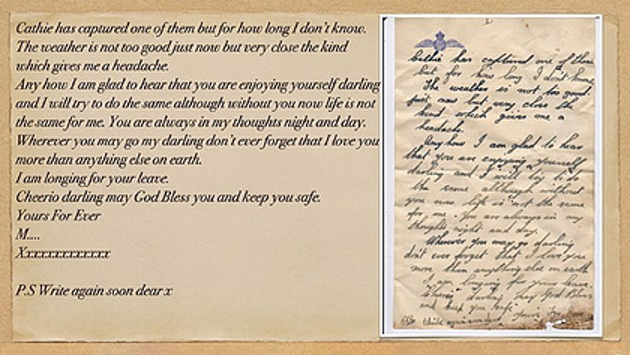 Cathie has captured one of them but for how long I don't know.
The weather is not too good just now but very close the kind
which gives me a headache.
Any how I am glad to hear that you are enjoying yourself darling
and I will try to do the same although without you now life is not
the same for me. You are always in my thoughts night and day.
Wherever you may go my darling don't ever forget that I love you
more than anything else on earth.
I am longing for your leave.
Cheerio darling may God Bless you and keep you safe.
Yours For Ever
M....
Xxxxxxxxxxxxx
P.S Write again soon dear x
Cathie has captured one of them
but for how long I don't know.
The weather is not too good
just now but very close the
kind which gives me a
headache.
Anyhow I am glad to hear
that you are enjoying yourself
darling and I will try to do
the same although without
you now life is not the same
for me. You are always in my
thoughts night and day.
Wherever you may go darling
don't ever forget that I love you
more than anything else on earth
I am longing for your leave.
Cheerio darling may God Bless
and keep you safe
Write again soon